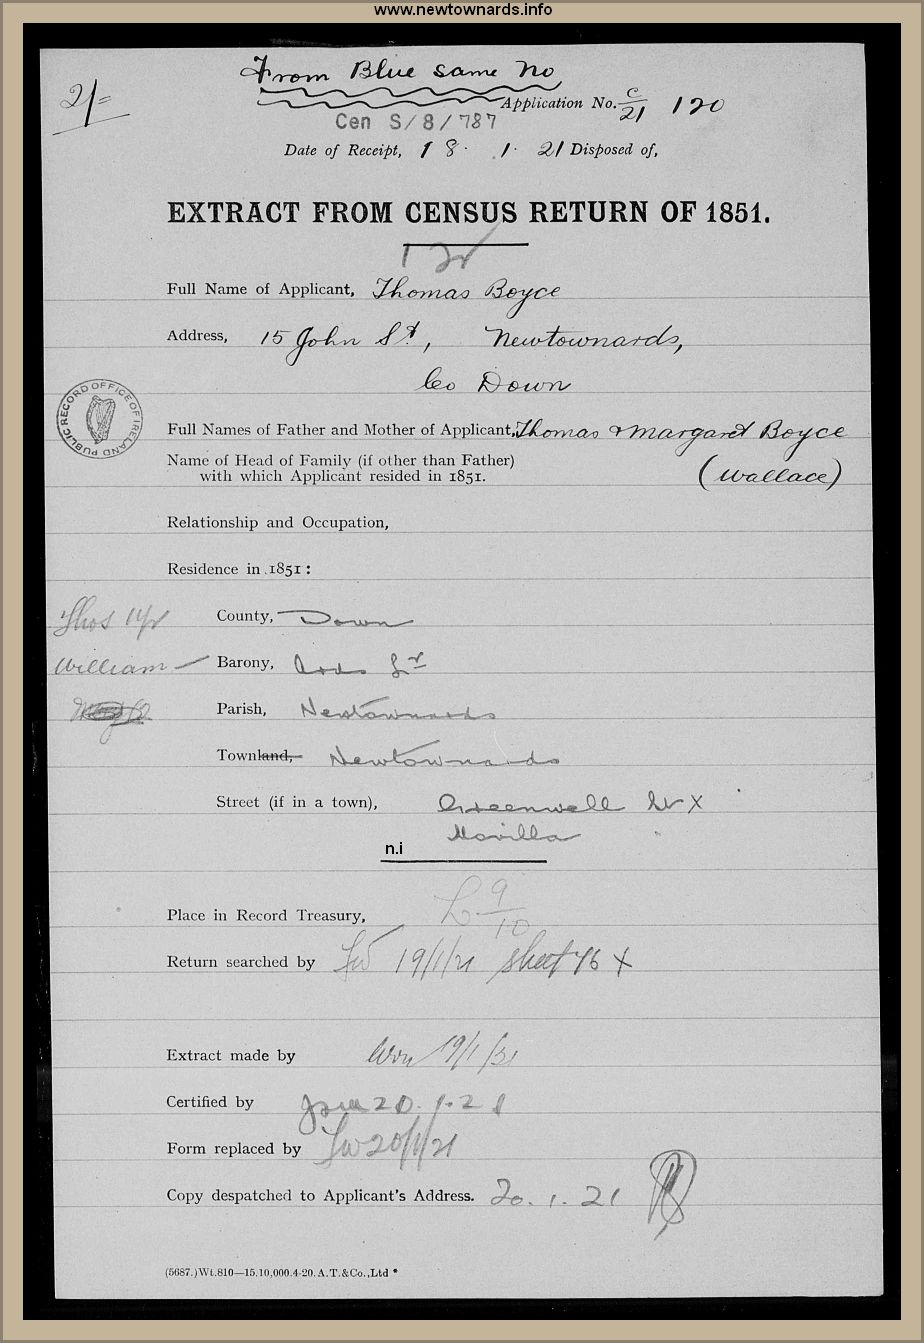 www.newtownards.info
From Blue same No
2/=
Application No. C/21 120
Cen S/8/787
Date of Receipt, 18. 1. 21 Disposed of,
EXTRACT FROM CENSUS RETURN OF 1851.
Full Name of Applicant, Thomas Boyce
Address, 15 John St, Newtownards,
Co Down
PUBLIC RECORD OFFICE OF IRELAND
Full Names of Father and Mother of Applicant, Thomas & Margaret Boyce
Name of Head of Family (if other than Father)
with which Applicant resided in 1851. (Wallace)
Relationship and Occupation,
Residence in 1851:
Thos
County, Down
William
Barony, Ards Lr
Parish, Newtownards
Townland, Newtownards
Street (if in a town), Greenwell St X
Movilla
n.i
Place in Record Treasury, L 9/10
Return searched by 19/1/21 Sheet 76 X
Extract made by 19/1/21
Certified by 20.1.21
Form replaced by 20/1/21
Copy despatched to Applicant's Address. 20.1.21
(5687.)Wt.810—15.10,000.4-20.A.T.&Co.,Ltd